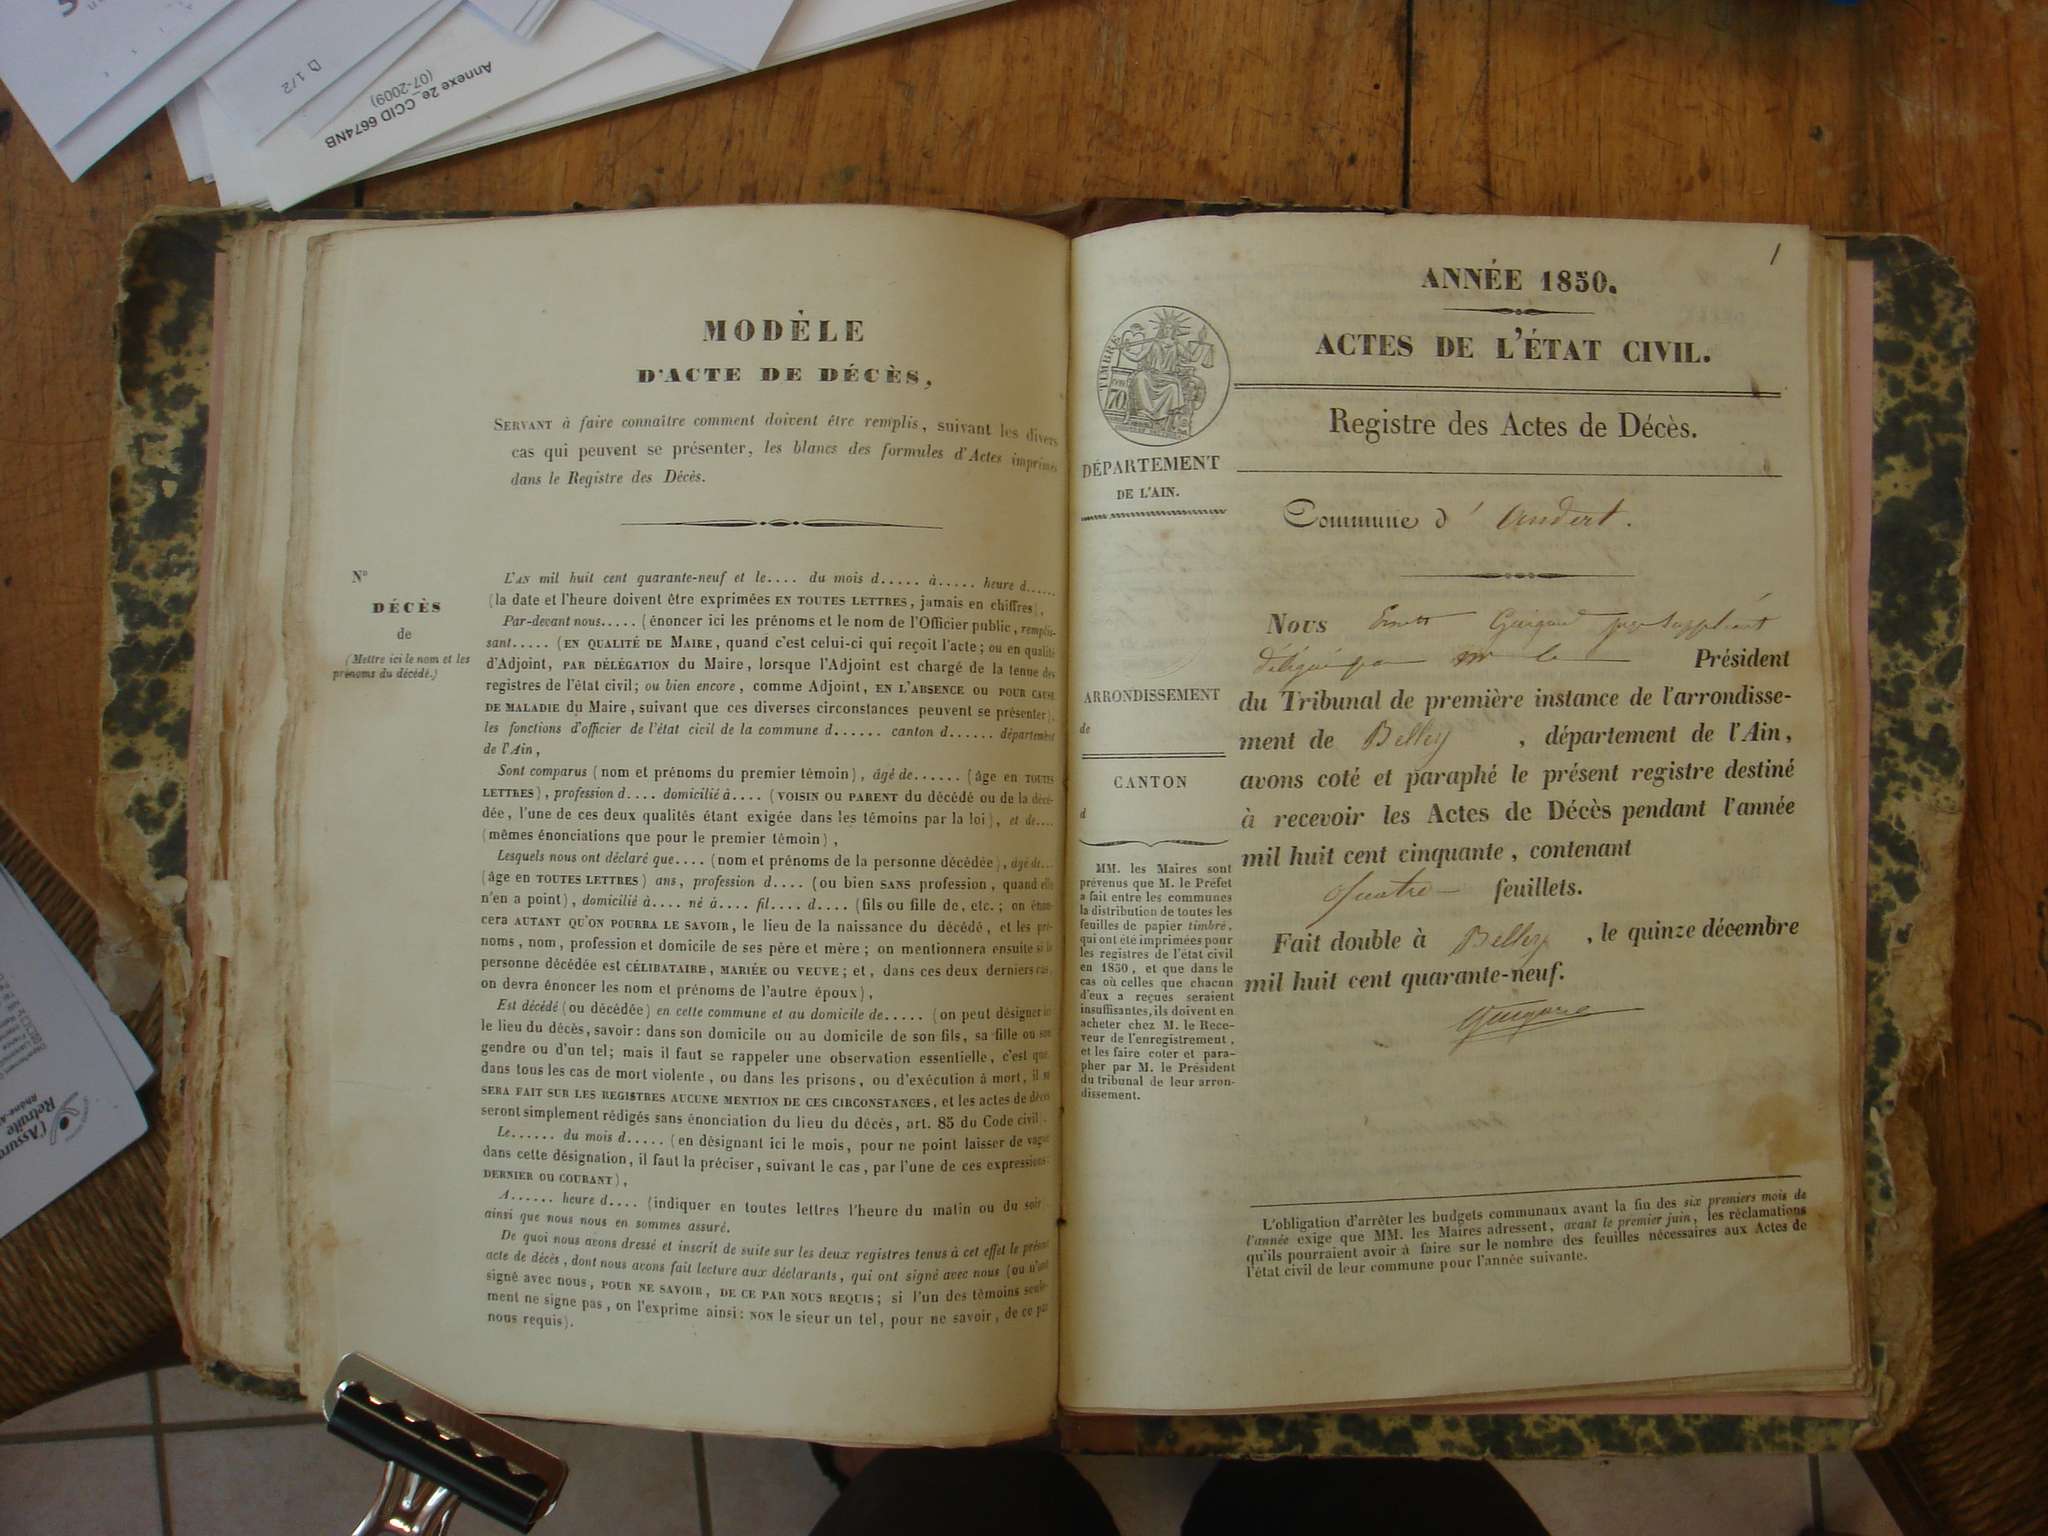 Annexe 2e_CCID 6674NB
(07-2009)
D 1/2
l'Assura
Retraite
MODÈLE
D'ACTE DE DÉCÈS,
SERVANT à faire connaître comment doivent être remplis, suivant les divers
cas qui peuvent se présenter, les blancs des formules d'Actes imprimés
dans le Registre des Décès.
N°
DÉCÈS
de
(Mettre ici le nom et les
prénoms du décédé.)
L'AN mil huit cent quarante-neuf et le.... du mois d..... à..... heure d......
(la date et l'heure doivent être exprimées EN TOUTES LETTRES, jamais en chiffres),
Par-devant nous..... (énoncer ici les prénoms et le nom de l'Officier public, remplis-
sant..... (EN QUALITÉ DE MAIRE, quand c'est celui-ci qui reçoit l'acte; ou en qualité
d'Adjoint, PAR DÉLÉGATION du Maire, lorsque l'Adjoint est chargé de la tenue des
registres de l'état civil; ou bien encore, comme Adjoint, EN L'ABSENCE OU POUR CAUSE
DE MALADIE du Maire, suivant que ces diverses circonstances peuvent se présenter),
les fonctions d'officier de l'état civil de la commune d...... canton d...... département
de l'Ain,
Sont comparus (nom et prénoms du premier témoin), âgé de...... (âge en TOUTES
LETTRES), profession d.... domicilié à.... (VOISIN OU PARENT du décédé ou de la décé-
dée, l'une de ces deux qualités étant exigée dans les témoins par la loi), et de....
(mêmes énonciations que pour le premier témoin),
Lesquels nous ont déclaré que.... (nom et prénoms de la personne décédée), âgé de...
(âge en TOUTES LETTRES) ans, profession d.... (ou bien SANS profession, quand elle
n'en a point), domicilié à.... né à.... fil.... d.... (fils ou fille de, etc.; on énon-
cera AUTANT QU'ON POURRA LE SAVOIR, le lieu de la naissance du décédé, et les pré-
noms, nom, profession et domicile de ses père et mère; on mentionnera ensuite si la
personne décédée est CÉLIBATAIRE, MARIÉE OU VEUVE; et, dans ces deux derniers cas,
on devra énoncer les nom et prénoms de l'autre époux),
Est décédé (ou décédée) en cette commune et au domicile de..... (on peut désigner ici
le lieu du décès, savoir: dans son domicile ou au domicile de son fils, sa fille ou son
gendre ou d'un tel; mais il faut se rappeler une observation essentielle, c'est que,
dans tous les cas de mort violente, ou dans les prisons, ou d'exécution à mort, il ne
SERA FAIT SUR LES REGISTRES AUCUNE MENTION DE CES CIRCONSTANCES, et les actes de décès
seront simplement rédigés sans énonciation du lieu du décès, art. 85 du Code civil).
Le...... du mois d..... (en désignant ici le mois, pour ne point laisser de vague
dans cette désignation, il faut la préciser, suivant le cas, par l'une de ces expressions:
DERNIER OU COURANT),
A...... heure d.... (indiquer en toutes lettres l'heure du matin ou du soir
ainsi que nous nous en sommes assuré.
De quoi nous avons dressé et inscrit de suite sur les deux registres tenus à cet effet le présent
acte de décès, dont nous avons fait lecture aux déclarants, qui ont signé avec nous (ou n'ont
signé avec nous, POUR NE SAVOIR, DE CE PAR NOUS REQUIS; si l'un des témoins seule-
ment ne signe pas, on l'exprime ainsi: NON le sieur un tel, pour ne savoir, de ce par
nous requis).
1
ANNÉE 1850.
ACTES DE L'ÉTAT CIVIL.
TIMBRE
70
Registre des Actes de Décès.
DÉPARTEMENT
DE L'AIN.
Commune d'Andert.
ARRONDISSEMENT
de
CANTON
d
MM. les Maires sont
prévenus que M. le Préfet
a fait entre les communes
la distribution de toutes les
feuilles de papier timbré,
qui ont été imprimées pour
les registres de l'état civil
en 1850, et que dans le
cas où celles que chacun
d'eux a reçues seraient
insuffisantes, ils doivent en
acheter chez M. le Rece-
veur de l'enregistrement,
et les faire coter et para-
pher par M. le Président
du tribunal de leur arron-
dissement.
Nous Guigard juge Suppléant
délégué par Mr le Président
du Tribunal de première instance de l'arrondisse-
ment de Belley, département de l'Ain,
avons coté et paraphé le présent registre destiné
à recevoir les Actes de Décès pendant l'année
mil huit cent cinquante, contenant
quatre feuillets.
Fait double à Belley, le quinze décembre
mil huit cent quarante-neuf.
L'obligation d'arrêter les budgets communaux avant la fin des six premiers mois de
l'année exige que MM. les Maires adressent, avant le premier juin, les réclamations
qu'ils pourraient avoir à faire sur le nombre des feuilles nécessaires aux Actes de
l'état civil de leur commune pour l'année suivante.